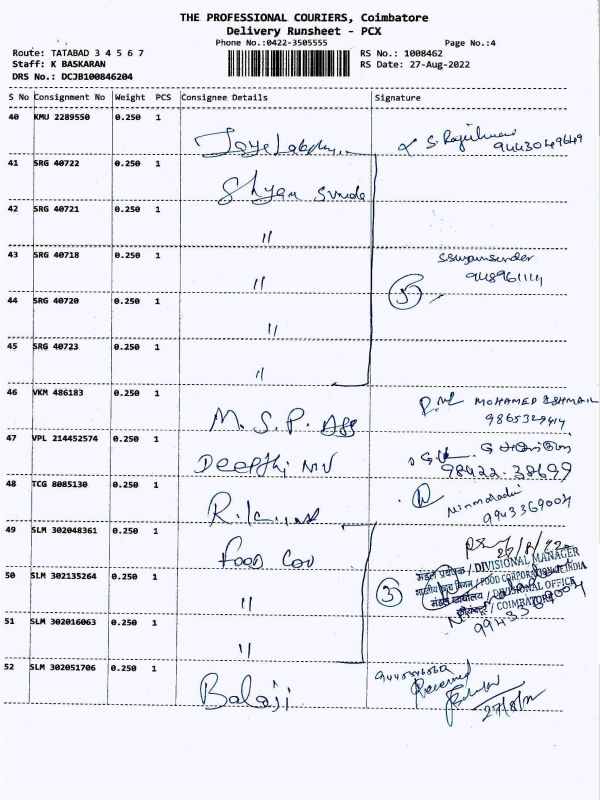 THE PROFESSIONAL COURIERS, Coimbatore
Delivery Runsheet - PCX
Phone No.:0422-3505555 Page No.:4
Route: TATABAD 3 4 5 6 7 RS No.: 1008462
Staff: K BASKARAN RS Date: 27-Aug-2022
DRS No.: DCJB100846204
S No Consignment No Weight PCS Consignee Details Signature
40 KMU 2289550 0.250 1
9443049649
41 SRG 40722 0.250 1
Shyam Sunda
42 SRG 40721 0.250 1
"
43 SRG 40718 0.250 1 sshyamsunder
" 5
44 SRG 40720 0.250 1
"
45 SRG 40723 0.250 1
"
46 VKM 486183 0.250 1 MOHAMED ISHMAIL
M. S. P. 9865329414
47 VPL 214452574 0.250 1
Deepthi MV 98422.38699
48 TCG 8085130 0.250 1
9943369004
49 SLM 302048361 0.250 1 27/8/22
Food
मंडल प्रबंधक / DIVISIONAL MANAGER
50 SLM 302135264 0.250 1 भारतीय खाद्य निगम / FOOD CORPORATION OF INDIA
" 3 मंडल कार्यालय / DIVISIONAL OFFICE
51 SLM 302016063 0.250 1 कोयंबटूर / COIMBATORE
" 9943369004
52 SLM 302051706 0.250 1
Balaji Received
27/8/22